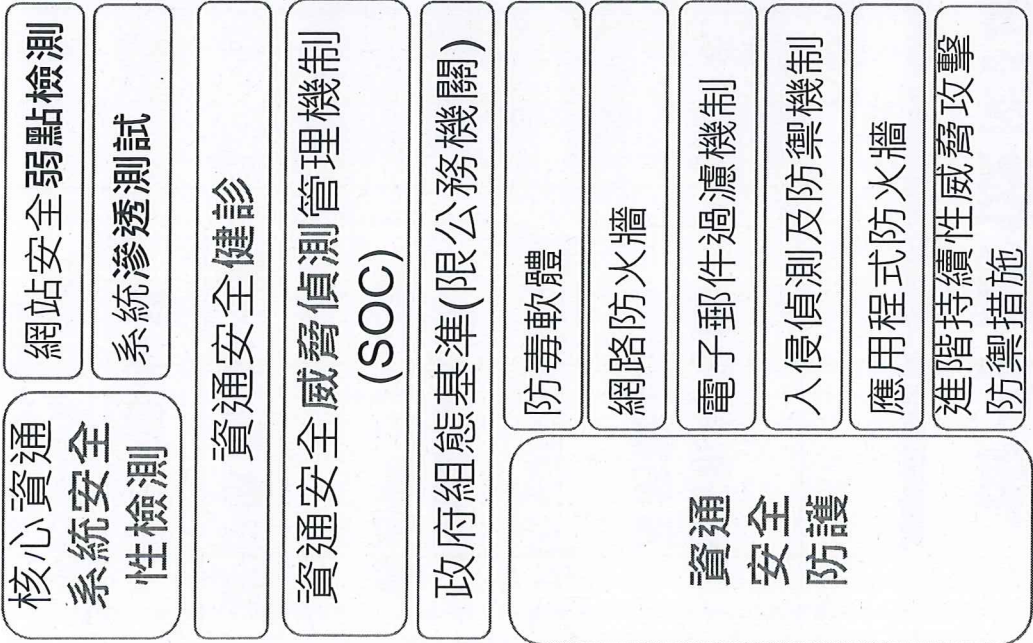 核心資通
系統安全
性檢測
網站安全弱點檢測
系統滲透測試
資通安全健診
資通安全威脅偵測管理機制
(SOC)
政府組態基準(限公務機關)
資通
安全
防護
防毒軟體
網路防火牆
電子郵件過濾機制
入侵偵測及防禦機制
應用程式防火牆
進階持續性威脅攻擊
防禦措施